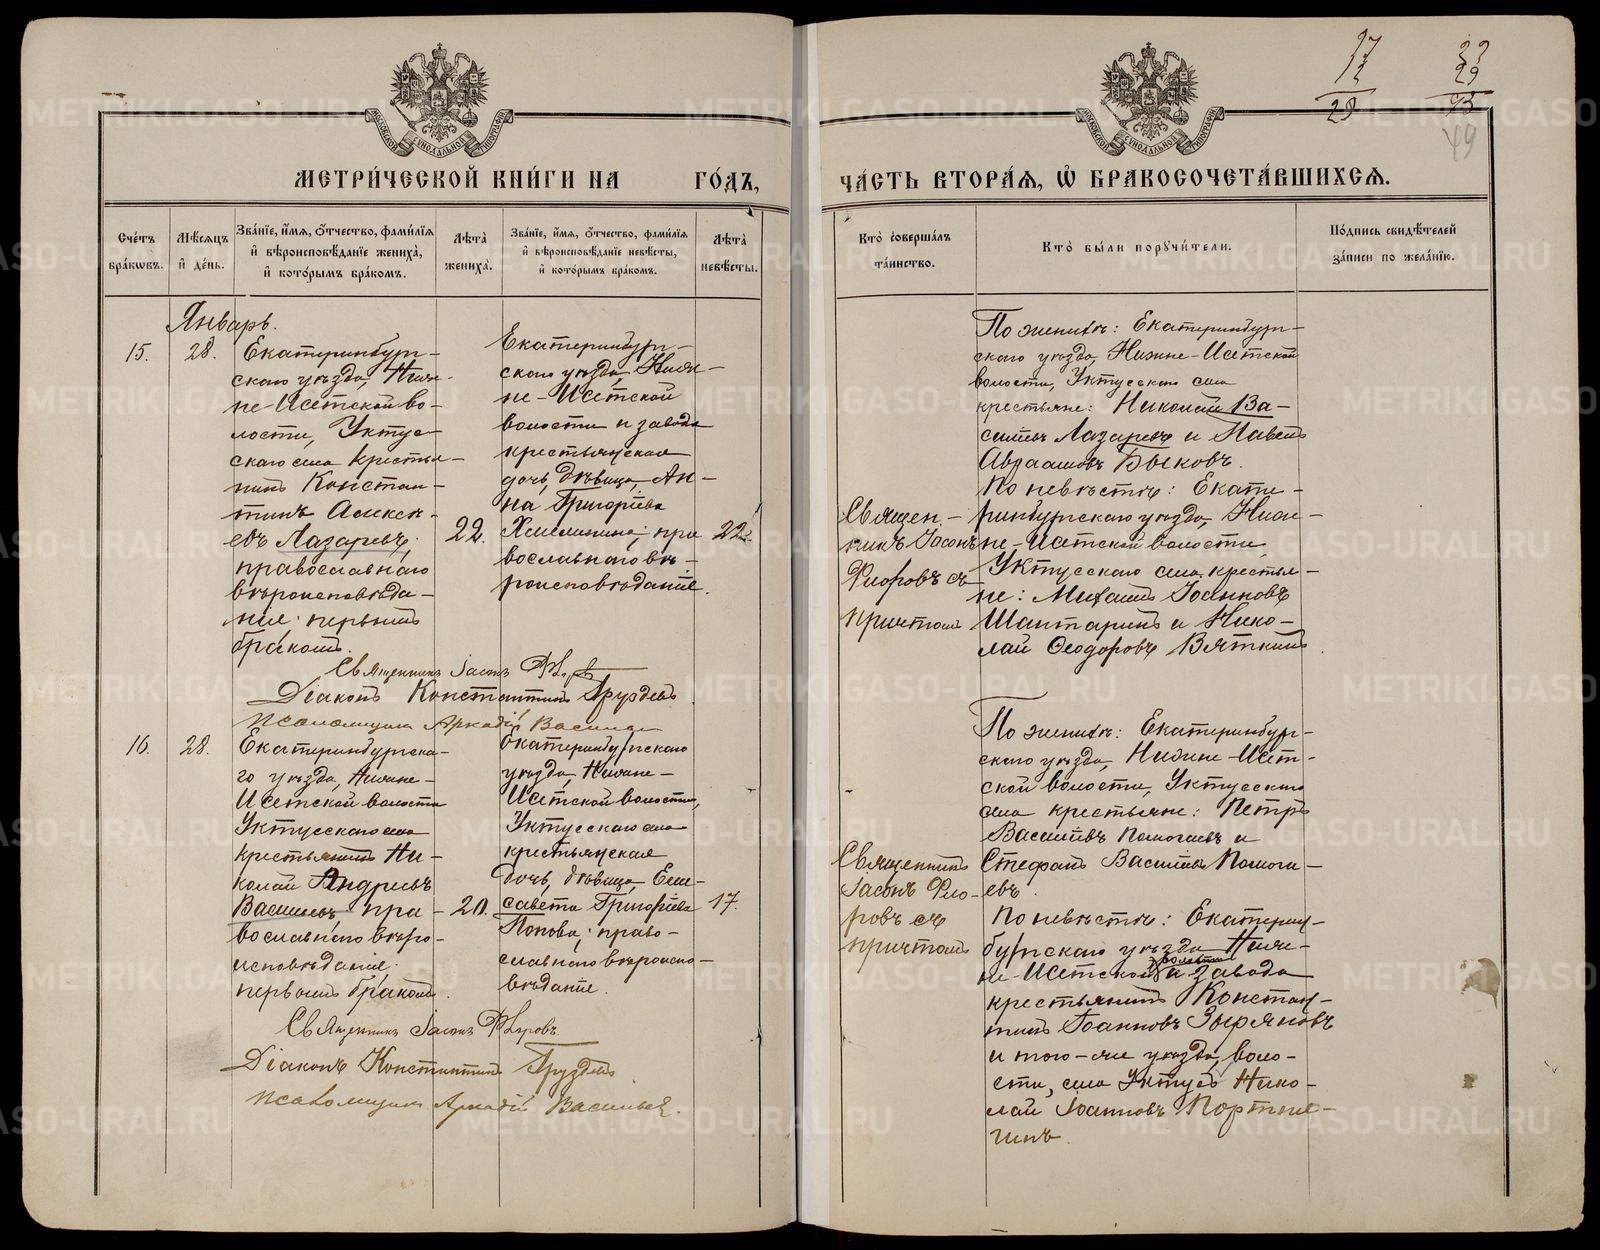 17
12
28
29
49
МОСКОВСКОЙ СѴНОДАЛЬНОЙ ТИПОГРАФІИ
МОСКОВСКОЙ СѴНОДАЛЬНОЙ ТИПОГРАФІИ
МЕТРИ́ЧЕСКОЙ КНИ́ГИ НА ГО́ДЪ,
ЧА́СТЬ ВТОРА́Я, Ѡ҆ БРАКОСОЧЕТА́ВШИХСЯ.
Сче́тъ бра́кѡвъ.
Мѣ́сяцъ и҆ де́нь.
Зва́нїе, и҆́мя, ѻ҆́тчество, фами́лїя и҆ вѣроисповѣ́данїе жениха̀, и҆ кото́рымъ бра́комъ.
Лѣ́та жениха̀.
Зва́нїе, и҆́мя, ѻ҆́тчество, фами́лїя и҆ вѣроисповѣ́данїе невѣ́сты, и҆ кото́рымъ бра́комъ.
Лѣ́та невѣ́сты.
Кто̀ соверша́лъ та́инство.
Кто̀ бы́ли порꙋчи́тели.
По́дпись свидѣ́телей за́писи по жела́нїю.
Январь.
15.
28.
Екатеринбург-
скаго уѣзда, Ниж-
не-Исетской во-
лости, Уктус-
скаго села крестья-
нинъ Констан-
тинъ Алексѣ-
евъ Лазаревъ,
православнаго
вѣроисповѣда-
нія; первымъ
бракомъ.
22.
Екатеринбург-
скаго уѣзда, Ниж-
не-Исетской
волости и завода
крестьянская
дочь, дѣвица, Ан-
на Григоріева
православнаго вѣ-
роисповѣданія.
22.
Священ-
никъ Іасонъ
Флоровъ съ
причтомъ
По женихѣ: Екатеринбург-
скаго уѣзда, Нижне-Исетской
волости, Уктусскаго села
крестьяне: Николай Ва-
сильевъ Лазаревъ и Павелъ
Авраамовъ Быковъ.
По невѣстѣ: Екате-
ринбургскаго уѣзда, Ниж-
не-Исетской волости,
Уктусскаго села, крестья-
не: Михаилъ Іоанновъ
Шантаринъ и Нико-
лай Ѳеодоровъ Вяткинъ.
Священникъ Іасонъ Флоровъ
Діаконъ Константинъ Груздевъ
Псаломщикъ Аркадій Васильевъ
16.
28.
Екатеринбургска-
го уѣзда, Нижне-
Исетской волости
Уктусскаго села
крестьянинъ Ни-
колай Андреевъ
Васильевъ, пра-
вославнаго вѣро-
исповѣданія;
первымъ бракомъ.
20.
Екатеринбургскаго
уѣзда, Нижне-
Исетской волости,
Уктусскаго села
крестьянская
дочь, дѣвица, Ели-
савета Григоріева
Попова; право-
славнаго вѣроиспо-
вѣданія.
17.
Священникъ
Іасонъ Фло-
ровъ съ
причтомъ
По женихѣ: Екатеринбург-
скаго уѣзда, Нижне-Исет-
ской волости, Уктусскаго
села крестьяне: Петръ
Васильевъ Помогаевъ и
Стефанъ Васильевъ Помога-
евъ.
По невѣстѣ: Екатерин-
бургскаго уѣзда Ниж-
волости
не-Исетской и завода
крестьянинъ Констан-
тинъ Іоанновъ Зыряновъ
и того-же уѣзда, воло-
сти, села Уктуса Нико-
лай Іоанновъ Портня-
гинъ.
Священникъ Іасонъ Флоровъ.
Діаконъ Константинъ Груздевъ
Псаломщикъ Аркадій Васильевъ.
METRIKI.GASO-URAL.RU